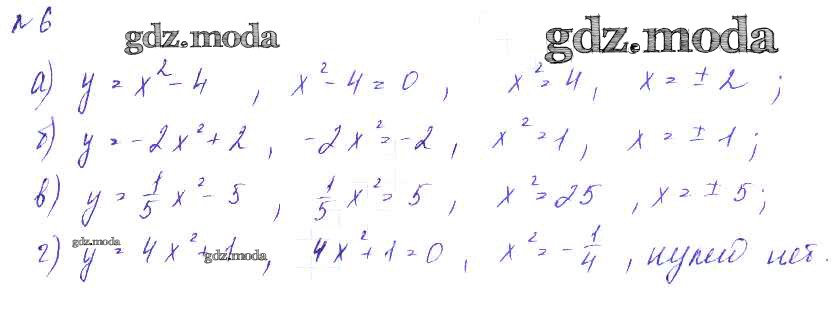 №6
gdz.moda gdz.moda
а) y = x² - 4, x² - 4 = 0, x² = 4, x = ± 2;
б) y = -2x² + 2, -2x² = -2, x² = 1, x = ± 1;
в) y = 1/5 x² - 5, 1/5 x² = 5, x² = 25, x = ± 5;
gdz.moda gdz.moda
г) y = 4x² + 1, 4x² + 1 = 0, x² = -1/4, нулей нет.